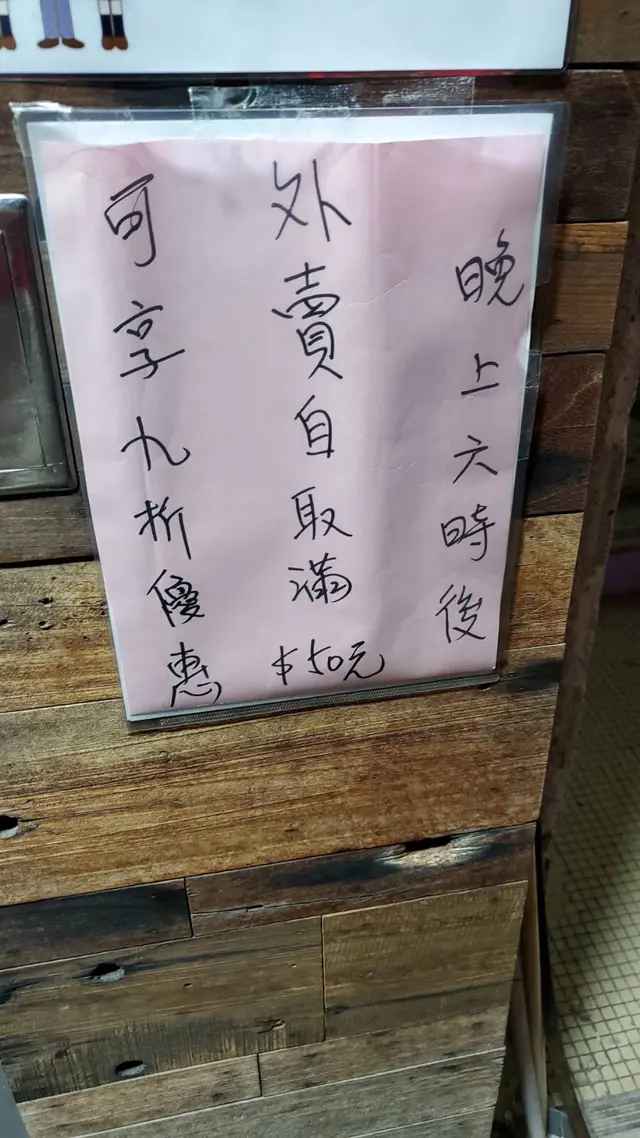 晚上六時後
外賣自取滿$50元
可享九折優惠